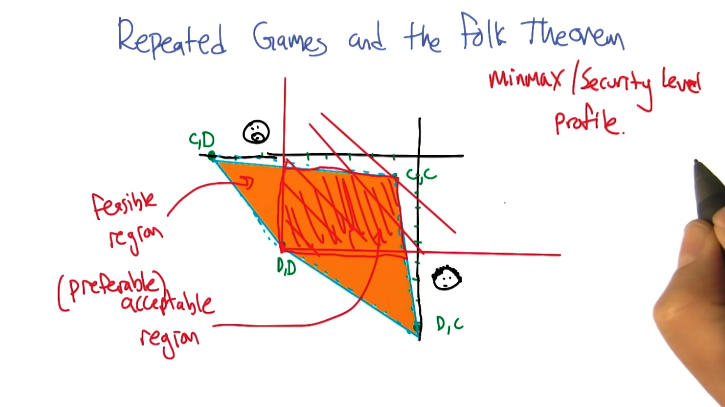 Repeated Games and the Folk Theorem
minmax/Security Level
Profile.
C,D
C,C
feasible
region
D,D
(preferable)
acceptable
region
D,C